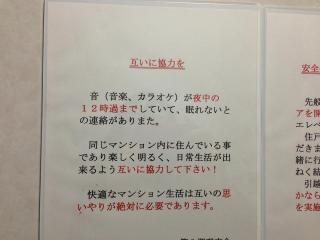 互いに協力を
音（音楽、カラオケ）が夜中の
１２時過までしていて、眠れないと
の連絡がありまた。
同じマンション内に住んでいる事
であり楽しく明るく、日常生活が出
来るよう互いに協力して下さい！
快適なマンション生活は互いの思
いやりが絶対に必要であります。
安全
先般
アを開
エレベ
住戸
だきま
緒に行
ねく結
引越
かなら
を実施